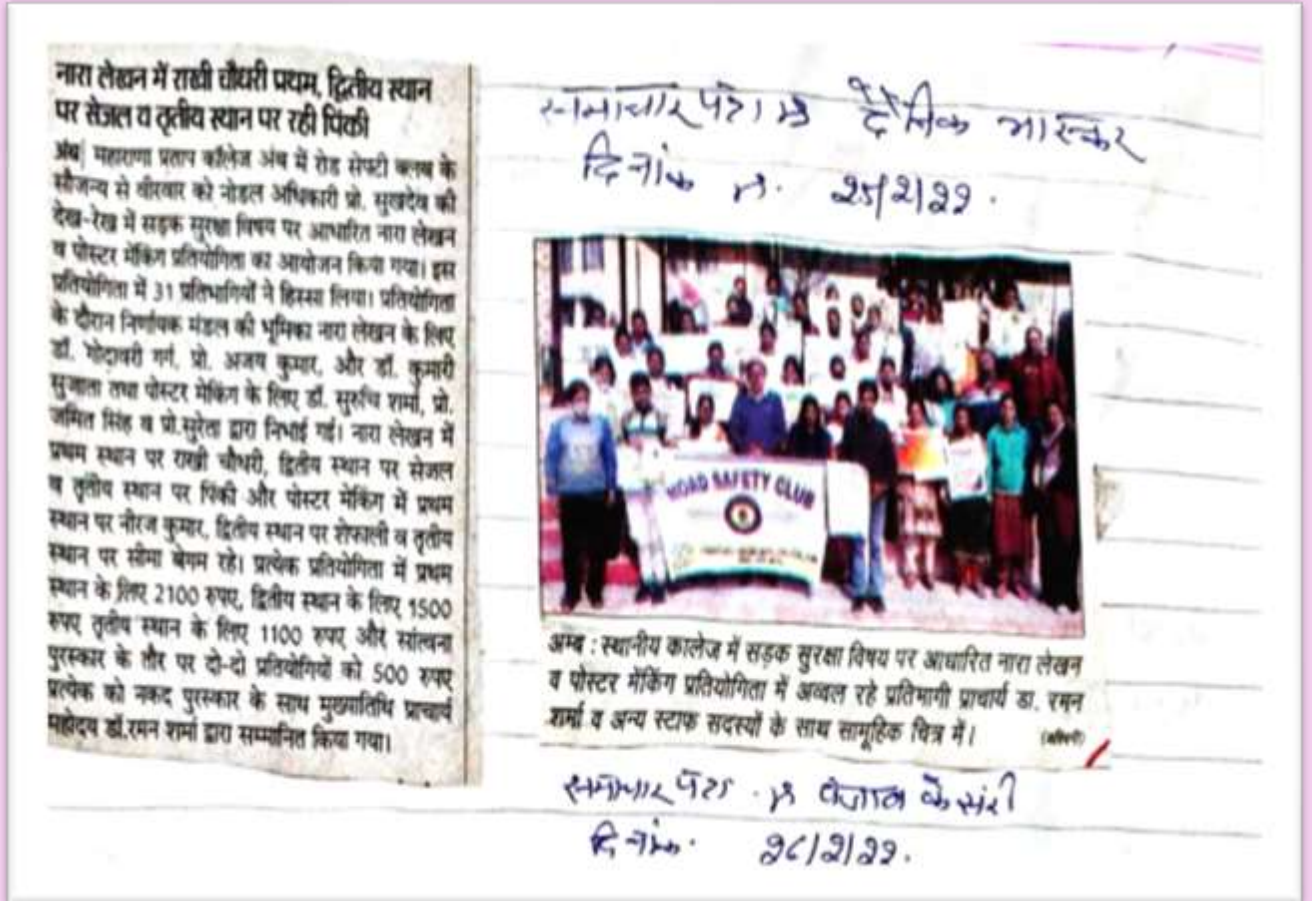 नारा लेखन में राखी चौधरी प्रथम, द्वितीय स्थान
पर सेजल व तृतीय स्थान पर रही पिंकी
अंब| महाराणा प्रताप कॉलेज अंब में रोड सेफ्टी क्लब के
सौजन्य से वीरवार को नोडल अधिकारी प्रो. सुखदेव की
देख-रेख में सड़क सुरक्षा विषय पर आधारित नारा लेखन
व पोस्टर मेकिंग प्रतियोगिता का आयोजन किया गया। इस
प्रतियोगिता में 31 प्रतिभागियों ने हिस्सा लिया। प्रतियोगिता
के दौरान निर्णायक मंडल की भूमिका नारा लेखन के लिए
डॉ. गोदावरी गर्ग, प्रो. अजय कुमार, और डॉ. कुमारी
सुजाता तथा पोस्टर मेकिंग के लिए डॉ. सुरुचि शर्मा, प्रो.
जमित सिंह व प्रो.सुरेता द्वारा निभाई गई। नारा लेखन में
प्रथम स्थान पर राखी चौधरी, द्वितीय स्थान पर सेजल
व तृतीय स्थान पर पिंकी और पोस्टर मेकिंग में प्रथम
स्थान पर नीरज कुमार, द्वितीय स्थान पर शेफाली व तृतीय
स्थान पर सीमा बेगम रहे। प्रत्येक प्रतियोगिता में प्रथम
स्थान के लिए 2100 रुपए, द्वितीय स्थान के लिए 1500
रुपए तृतीय स्थान के लिए 1100 रुपए और सांत्वना
पुरस्कार के तौर पर दो-दो प्रतियोगियों को 500 रुपए
प्रत्येक को नकद पुरस्कार के साथ मुख्यातिथि प्राचार्य
महोदय डॉ.रमन शर्मा द्वारा सम्मानित किया गया।
समाचार पत्र में दैनिक भास्कर
दिनांक में. २५/२/२२.
ROAD SAFETY CLUB
अम्ब : स्थानीय कालेज में सड़क सुरक्षा विषय पर आधारित नारा लेखन
व पोस्टर मेकिंग प्रतियोगिता में अव्वल रहे प्रतिभागी प्राचार्य डा. रमन
शर्मा व अन्य स्टाफ सदस्यों के साथ सामूहिक चित्र में।
समाचार पत्र. में पंजाब केसरी
दिनांक. २८/२/२२.